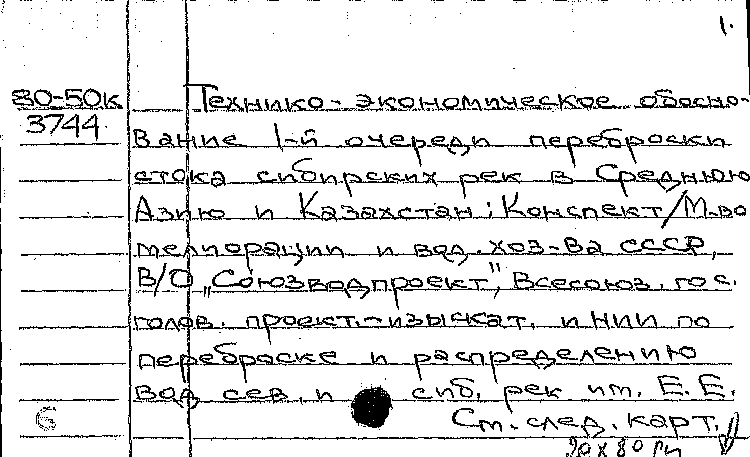 1.
80-50к
3744
Технико-экономическое обосно-
вание 1-й очереди переброски
стока сибирских рек в Среднюю
Азию и Казахстан: Конспект/М-во
мелиорации и вод. хоз-ва СССР,
В/О "Союзводпроект", Всесоюз. гос.
голов. проект.-изыскат. и НИИ по
переброске и распределению
вод сев. и сиб. рек им. Е. Е.
См. след. карт.
6